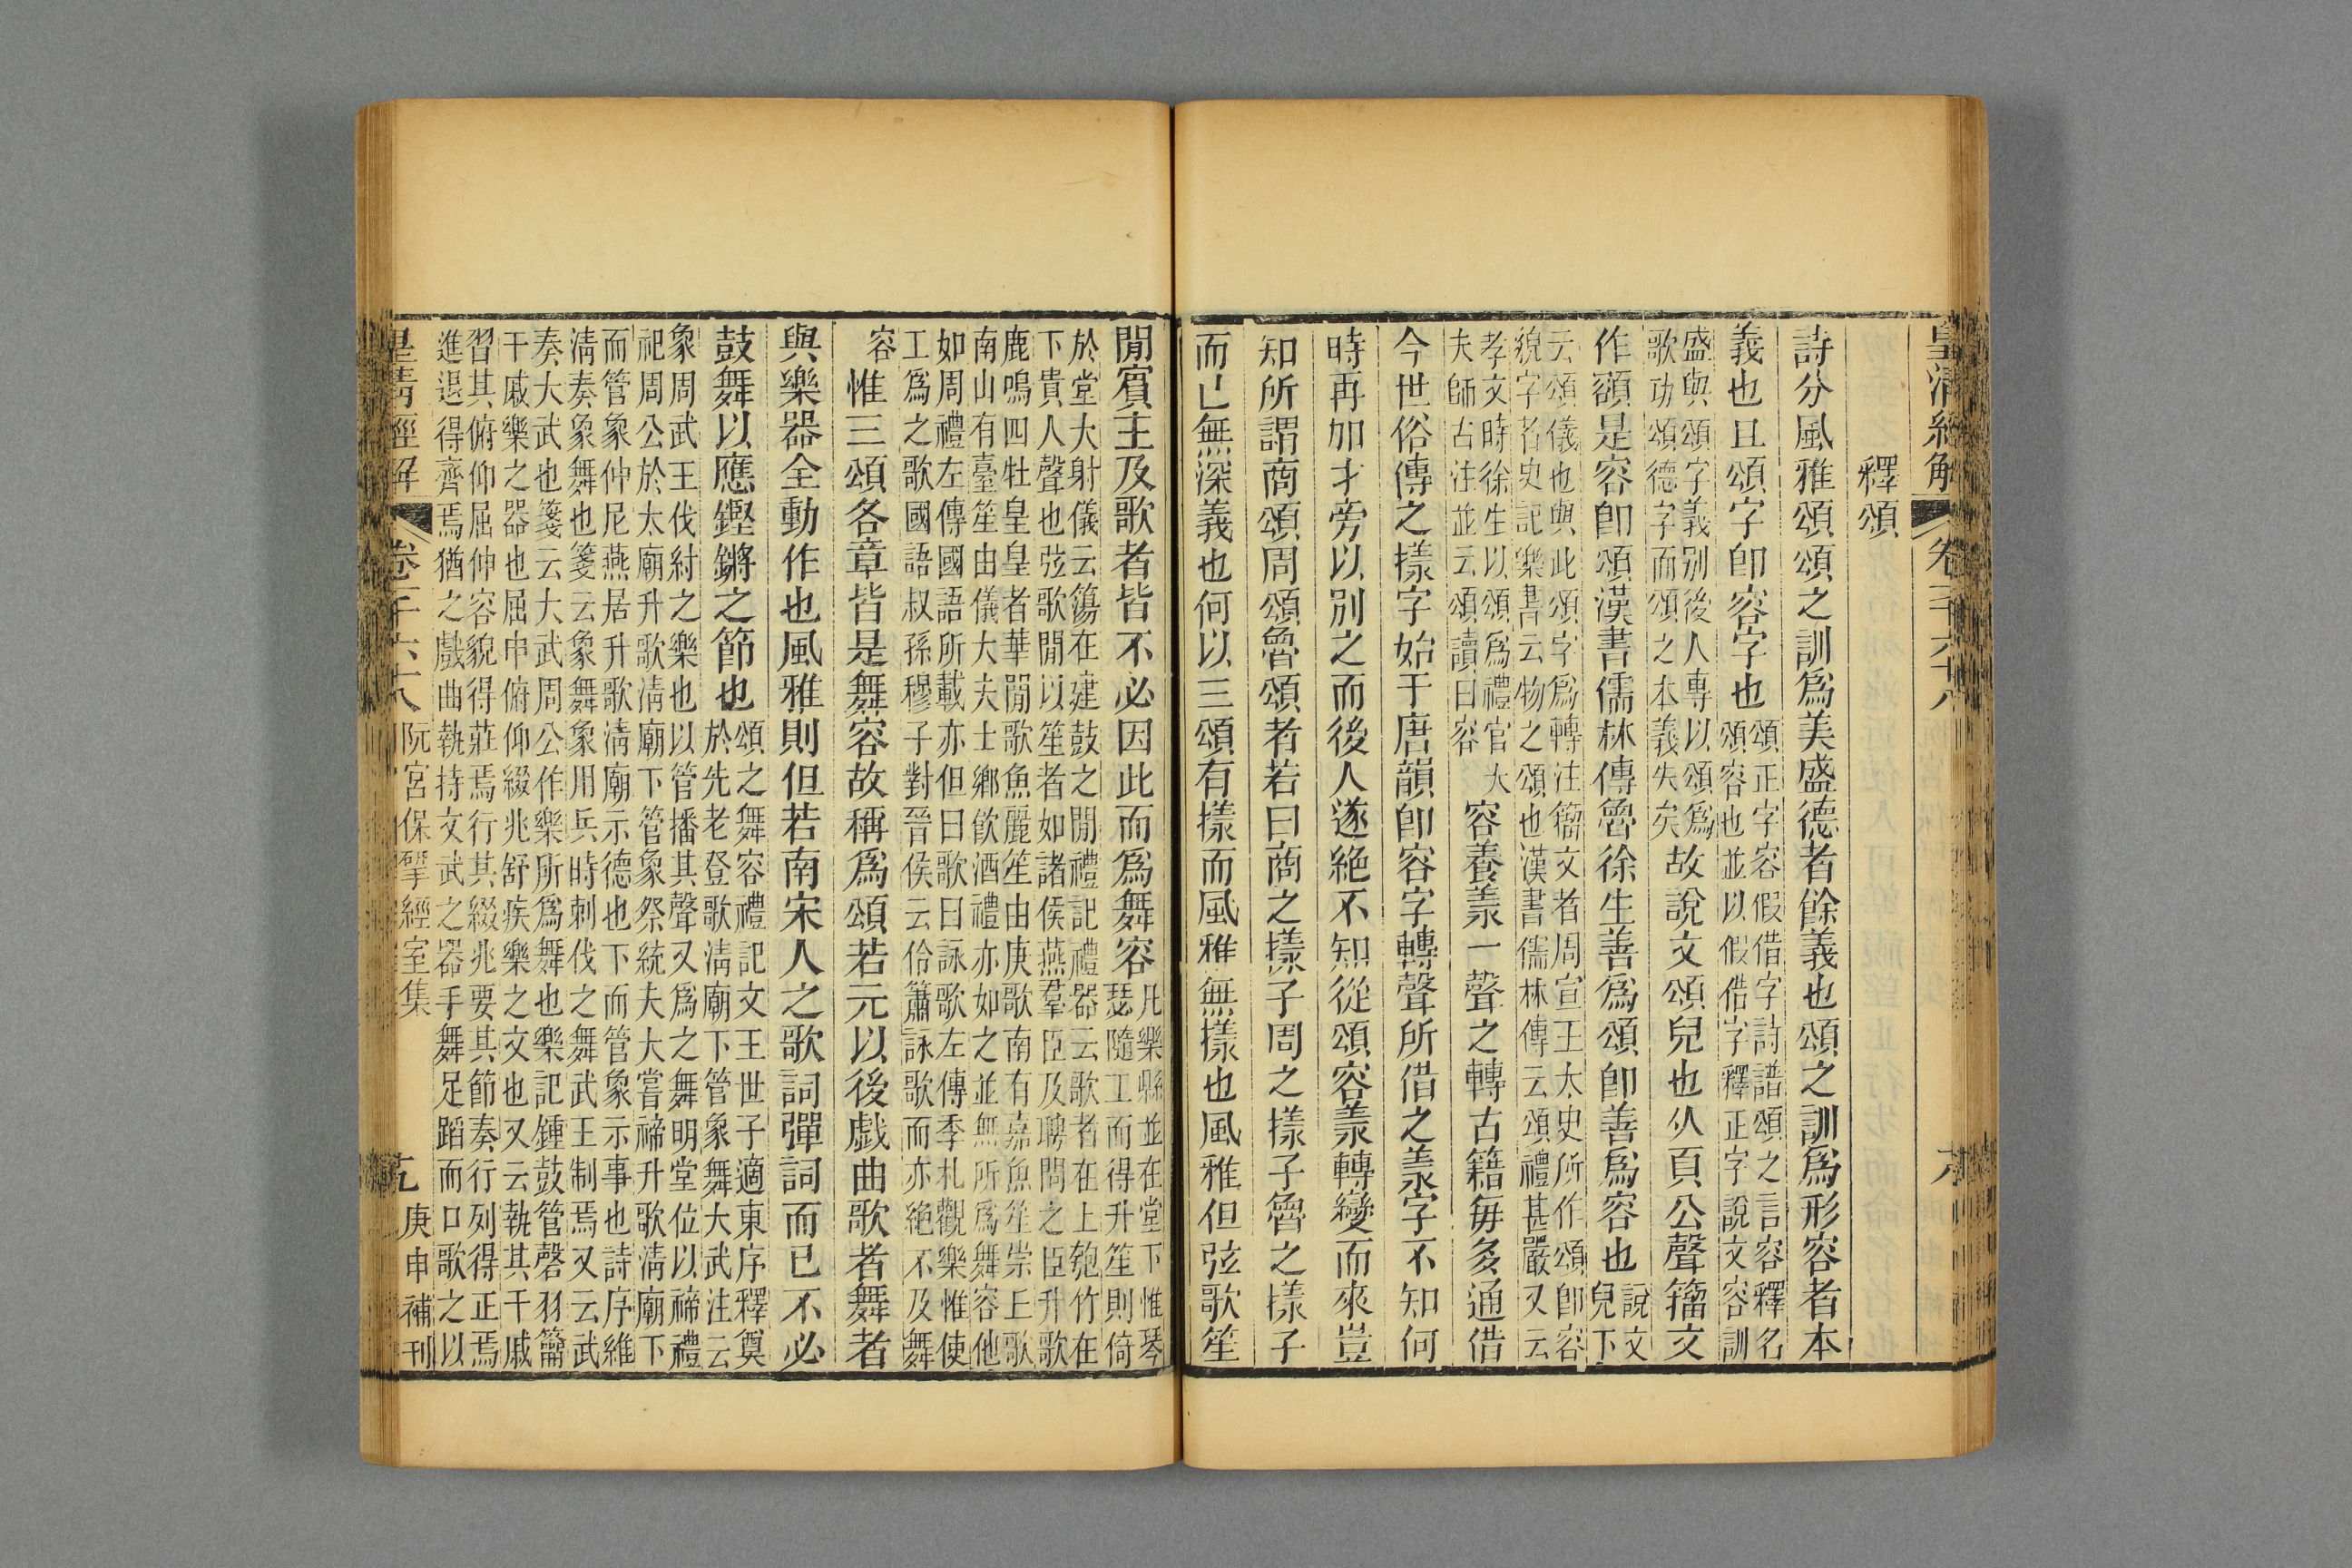 皇清經解 卷千六十八
釋頌
詩分風雅頌頌之訓爲美盛德者餘義也頌之訓爲形容者本
義也且頌字卽容字也
頌正字容假借字詩譜頌之言容釋名
頌容也並以假借字釋正字說文容訓
盛與頌字義別後人專以頌爲
歌功頌德字而頌之本義失矣
故說文頌皃也从頁公聲籀文
作額是容卽頌漢書儒林傳魯徐生善爲頌卽善爲容也
說文
皃下
云頌儀也與此頌字爲轉注籀文者周宣王太史所作頌卽容
貌字者史記樂書云物之頌也漢書儒林傳云頌禮甚嚴又云
孝文時徐生以頌爲禮官大
夫師古注並云頌讀曰容
容養羕一聲之轉古籍每多通借
今世俗傳之㨾字始于唐韻卽容字轉聲所借之羕字不知何
時再加才旁以別之而後人遂絶不知從頌容羕轉變而來豈
知所謂商頌周頌魯頌者若曰商之㨾子周之㨾子魯之㨾子
而已無深義也何以三頌有㨾而風雅無㨾也風雅但弦歌笙
閒賓主及歌者皆不必因此而爲舞容
凡樂縣並在堂下惟琴
瑟隨工而得升笙則倚
於堂大射儀云簜在建鼓之閒禮記禮器云歌者在上匏竹在
下貴人聲也弦歌閒以笙者如諸侯燕羣臣及聘問之臣升歌
鹿鳴四牡皇皇者華閒歌魚麗笙由庚歌南有嘉魚笙崇丘歌
南山有臺笙由儀大夫士鄉飮酒禮亦如之並無所爲舞容他
如周禮左傳國語所載亦但曰歌曰詠歌左傳季札觀樂惟使
工爲之歌國語叔孫穆子對晉侯云伶簫詠歌而亦絶不及舞
容
惟三頌各章皆是舞容故稱爲頌若元以後戲曲歌者舞者
與樂器全動作也風雅則但若南宋人之歌詞彈詞而已不必
鼓舞以應鏗鏘之節也
頌之舞容禮記文王世子適東序釋奠
於先老登歌淸廟下管象舞大武注云
象周武王伐紂之樂也以管播其聲又爲之舞明堂位以禘禮
祀周公於太廟升歌淸廟下管象祭統夫大嘗禘升歌淸廟下
而管象仲尼燕居升歌淸廟示德也下而管象示事也詩序維
淸奏象舞也箋云象舞象用兵時刺伐之舞武王制焉又云武
奏大武也箋云大武周公作樂所爲舞也樂記鍾鼓管磬羽籥
干戚樂之器也屈申俯仰綴兆舒疾樂之文也又云執其干戚
習其俯仰屈伸容貌得莊焉行其綴兆要其節奏行列得正焉
進退得齊焉猶之戲曲執持文武之器手舞足蹈而口歌之以
皇清經解 卷千六十八 阮宮保揅經室集
庚申補刊